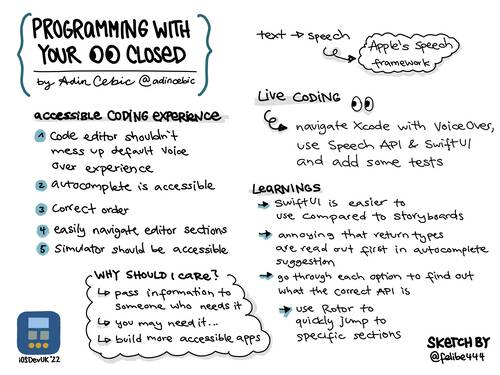 PROGRAMMING WITH
YOUR 👀 CLOSED
by Adin Cebic @adincebic
accessible CODING EXPERIENCE
1 Code editor shouldn't
mess up default voice
over experience
2 autocomplete is accessible
3 correct order
4 easily navigate editor sections
5 Simulator should be accessible
WHY SHOULD I CARE?
↳ pass information to
someone who needs it
↳ you may need it...
↳ build more accessible apps
iOSDevUK '22
text → speech
Apple's Speech
framework
Live CODING 👀
navigate Xcode with VoiceOver,
use Speech API & SwiftUI
and add some tests
LEARNINGS
→ SwiftUI is easier to
use compared to storyboards
→ annoying that return types
are read out first in autocomplete
suggestion
→ go through each option to find out
what the correct API is
→ use Rotor to
quickly jump to
specific sections
SKETCH BY
@falibe444